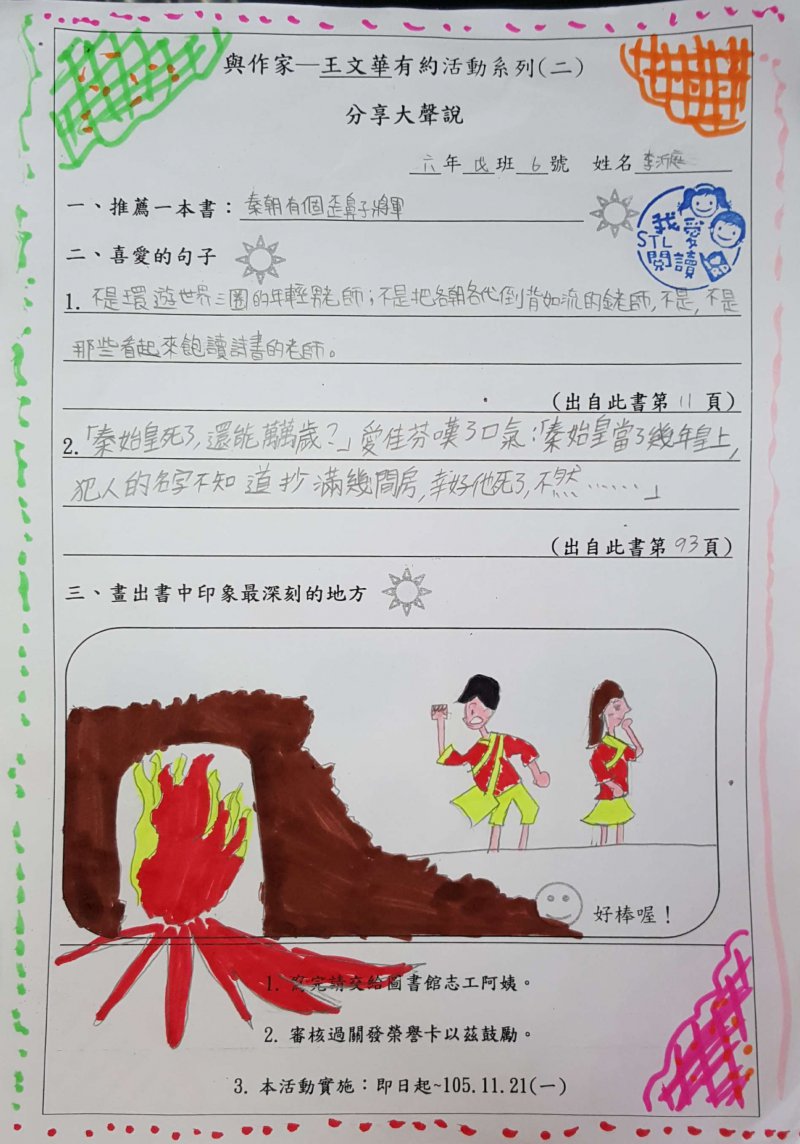 與作家—王文華有約活動系列(二)
分享大聲說
六年戊班6號 姓名李沂庭
一、推薦一本書：秦朝有個歪鼻子將軍
我愛
STL
閱讀
二、喜愛的句子
1. 不是環遊世界三圈的年輕男老師；不是把各朝各代倒背如流的老師，不是，不是
那些看起來飽讀詩書的老師。
(出自此書第11頁)
2. 「秦始皇死了，還能萬萬歲？」愛佳芬嘆了口氣：「秦始皇當了幾年皇上，
犯人的名字不知道抄滿幾間房，幸好他死了，不然……」
(出自此書第93頁)
三、畫出書中印象最深刻的地方
好棒喔！
1. 寫完請交給圖書館志工阿姨。
2. 審核過關發榮譽卡以茲鼓勵。
3. 本活動實施：即日起~105.11.21(一)